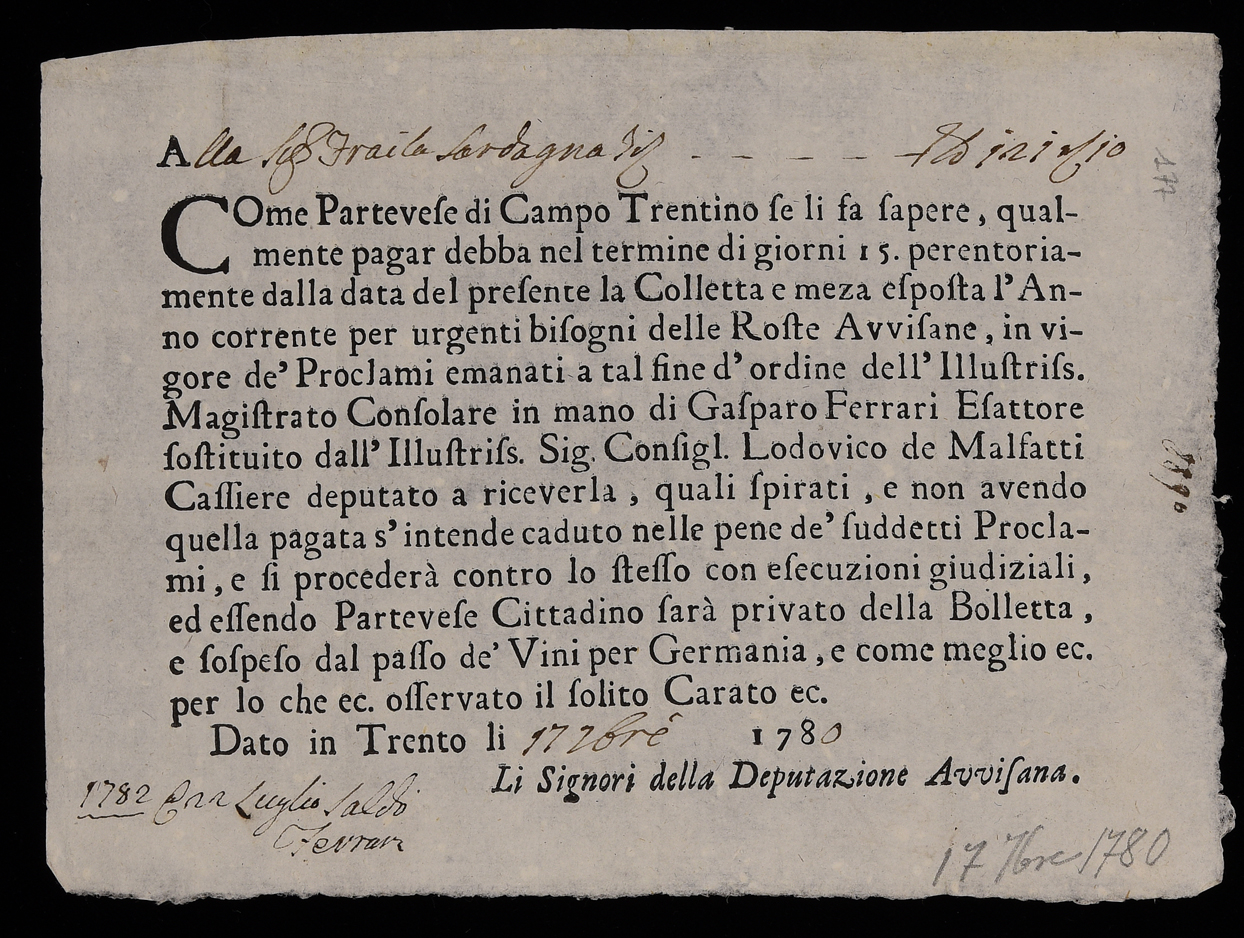 Alla Sardagna
COme Parteveſe di Campo Trentino ſe li fa ſapere, qual-
mente pagar debba nel termine di giorni 15. perentoria-
mente dalla data del preſente la Colletta e meza eſpoſta l'An-
no corrente per urgenti biſogni delle Roſte Avviſane, in vi-
gore de' Proclami emanati a tal fine d'ordine dell' Illuſtriſs.
Magiſtrato Conſolare in mano di Gaſparo Ferrari Eſattore
ſoſtituito dall' Illuſtriſs. Sig. Conſigl. Lodovico de Malfatti
Caſſiere deputato a riceverla, quali ſpirati, e non avendo
quella pagata s'intende caduto nelle pene de' ſuddetti Procla-
mi, e ſi procederà contro lo ſteſſo con eſecuzioni giudiziali,
ed eſſendo Parteveſe Cittadino ſarà privato della Bolletta,
e ſoſpeſo dal paſſo de' Vini per Germania, e come meglio ec.
per lo che ec. oſſervato il ſolito Carato ec.
Dato in Trento li 17 7bre 1780
Li Signori della Deputazione Avviſana.
1782 22 Luglio Saldò
Ferrari
17 7bre 1780